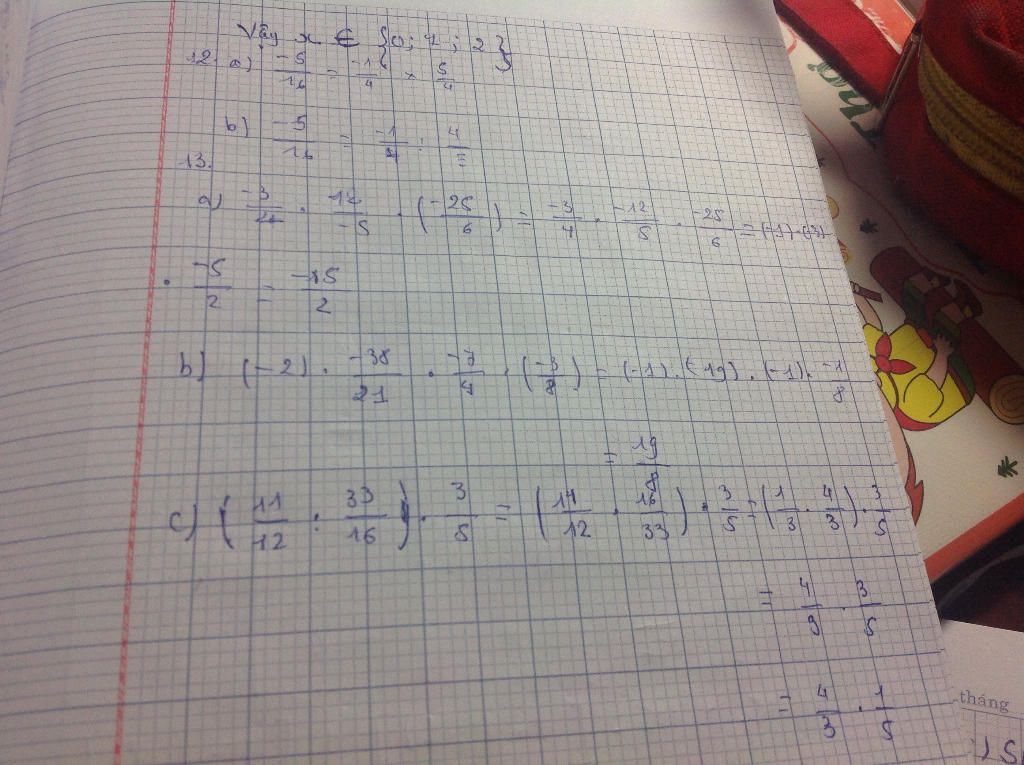 Vậy x ∈ {0; 1; 2}
12. a) -5/16 = -1/4 × 5/4
b) -5/16 = -1/4 : 4/5
13.
a) -3/4 . 12/-5 . (-25/6) = -3/4 . -12/5 . -25/6 = (-1) . (-3)
. -5/2 = -15/2
b) (-2) . -38/21 . -7/4 . (-3/8) = (-1) . (-19) . (-1) . -1/8
= 19/8
c) (11/12 : 33/16) . 3/5 = (11/12 . 16/33) . 3/5 = (1/3 . 4/3) . 3/5
= 4/9 . 3/5
= 4/3 . 1/5
tháng